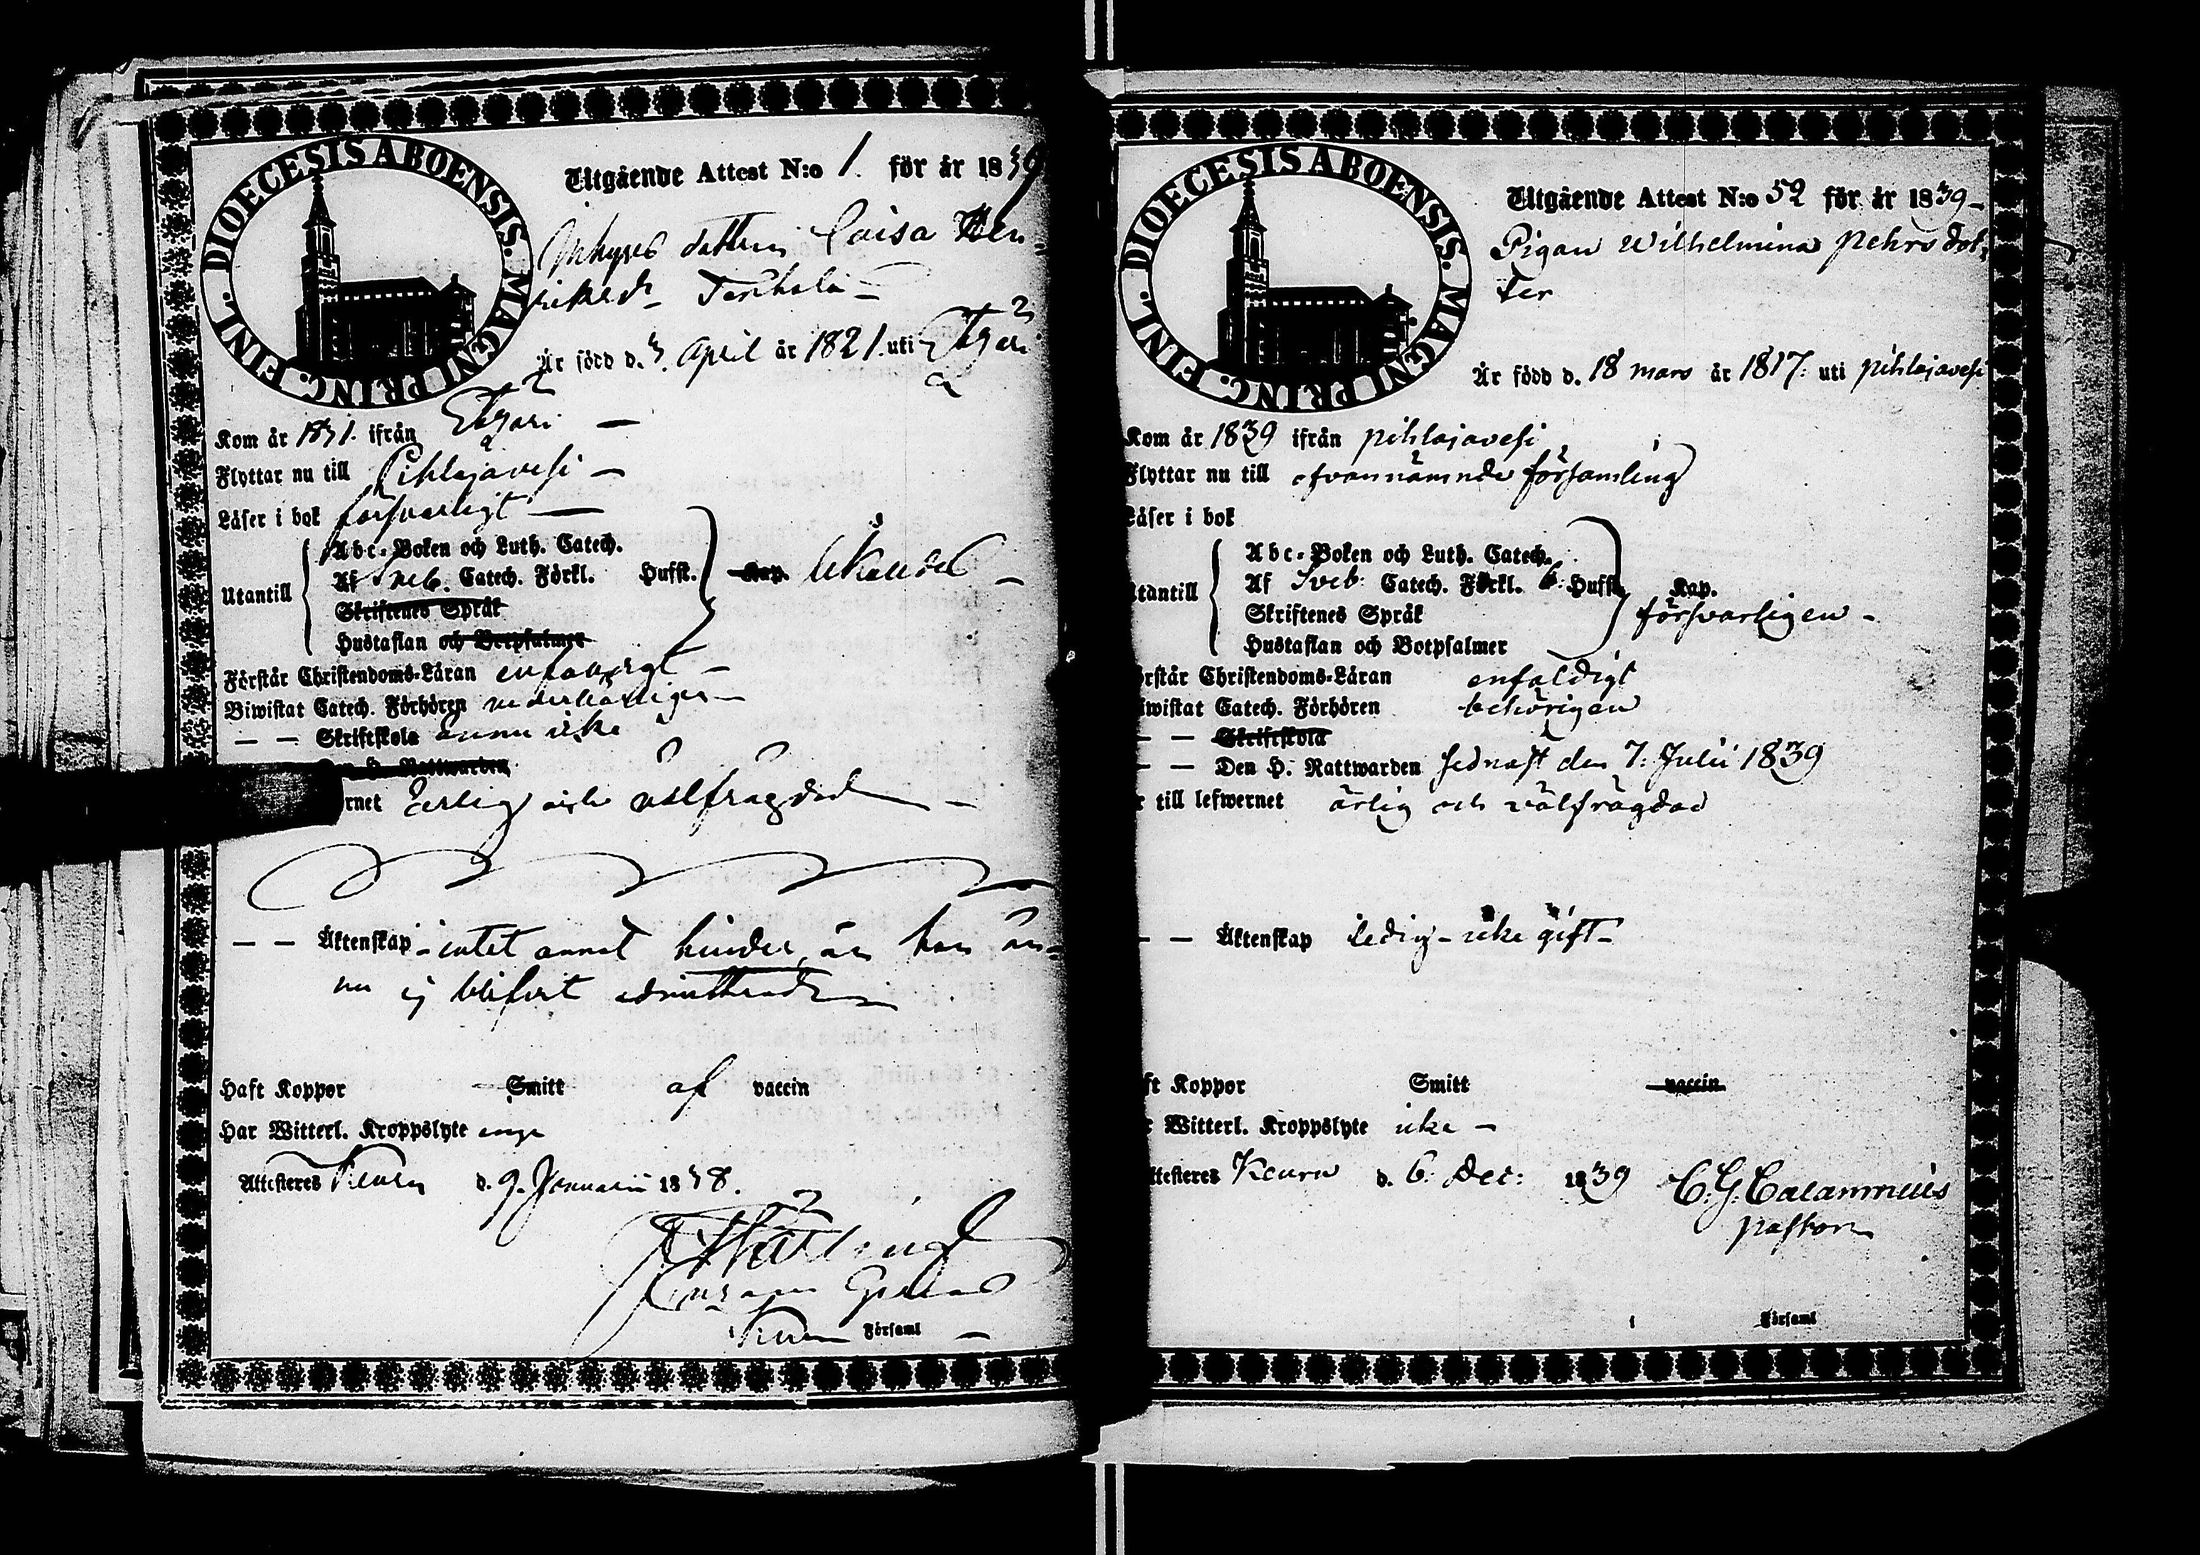 DIOECESIS ABOENSIS. MAGNI PRINC. FINL.
Utgående Attest N:o 1. för år 1839
Inhyses dottern Caisa Hen-
riksdr
Är född d. 3. April år 1821. uti Etzäri
Kom år 1831. ifrån Etzäri —
Flyttar nu till Pihlajavesi —
Läser i bok försvarligt —
Utantill
Abc-Boken och Luth. Catech.
Af Sveb. Catech. Förkl. Hufst. Kap.
Skriftenes Språk
Hustaflan och Botpsalmer
Förstår Christendoms-Läran enfaldigt —
Biwistat Catech. Förhören vederbörligen —
— — Skriftskola ännu icke
Den H. Nattwarden
rnet Ärlig och välfrägdad —
— — Äktenskap intet annat hinder, än hon än-
nu ej blifvit admitterad
Haft Koppor Smitt af vaccin
Har Witterl. Kroppslyte inga
Attesteres Keuru d. 9. Januarii 1838.
Keuru Församl —
DIOECESIS ABOENSIS. MAGNI PRINC. FINL.
Utgående Attest N:o 52 för år 1839 -
Pigan Wilhelmina Pehrsdot-
ter
Är född d. 18 mars år 1817. uti pihlajavesi
Kom år 1839 ifrån pihlajavesi
Flyttar nu till ofvannämnde församling
Läser i bok
Utantill
Abc-Boken och Luth. Catech.
Af Sveb: Catech. Förkl. 6: Hufst. Kap.
Skriftenes Språk försvarligen -
Hustaflan och Botpsalmer
örstår Christendoms-Läran enfaldigt
iwistat Catech. Förhören behörigen
— — Skriftskola
— — Den H. Nattwarden sednast den 7: Julii 1839
r till lefwernet ärlig och välfrägdad
— — Äktenskap ledig - icke gift -
ft Koppor Smitt vaccin
r Witterl. Kroppslyte icke —
ttesteres Keuru d. 6: Dec: 1839 C. G. Calamnius
pastor
Församl